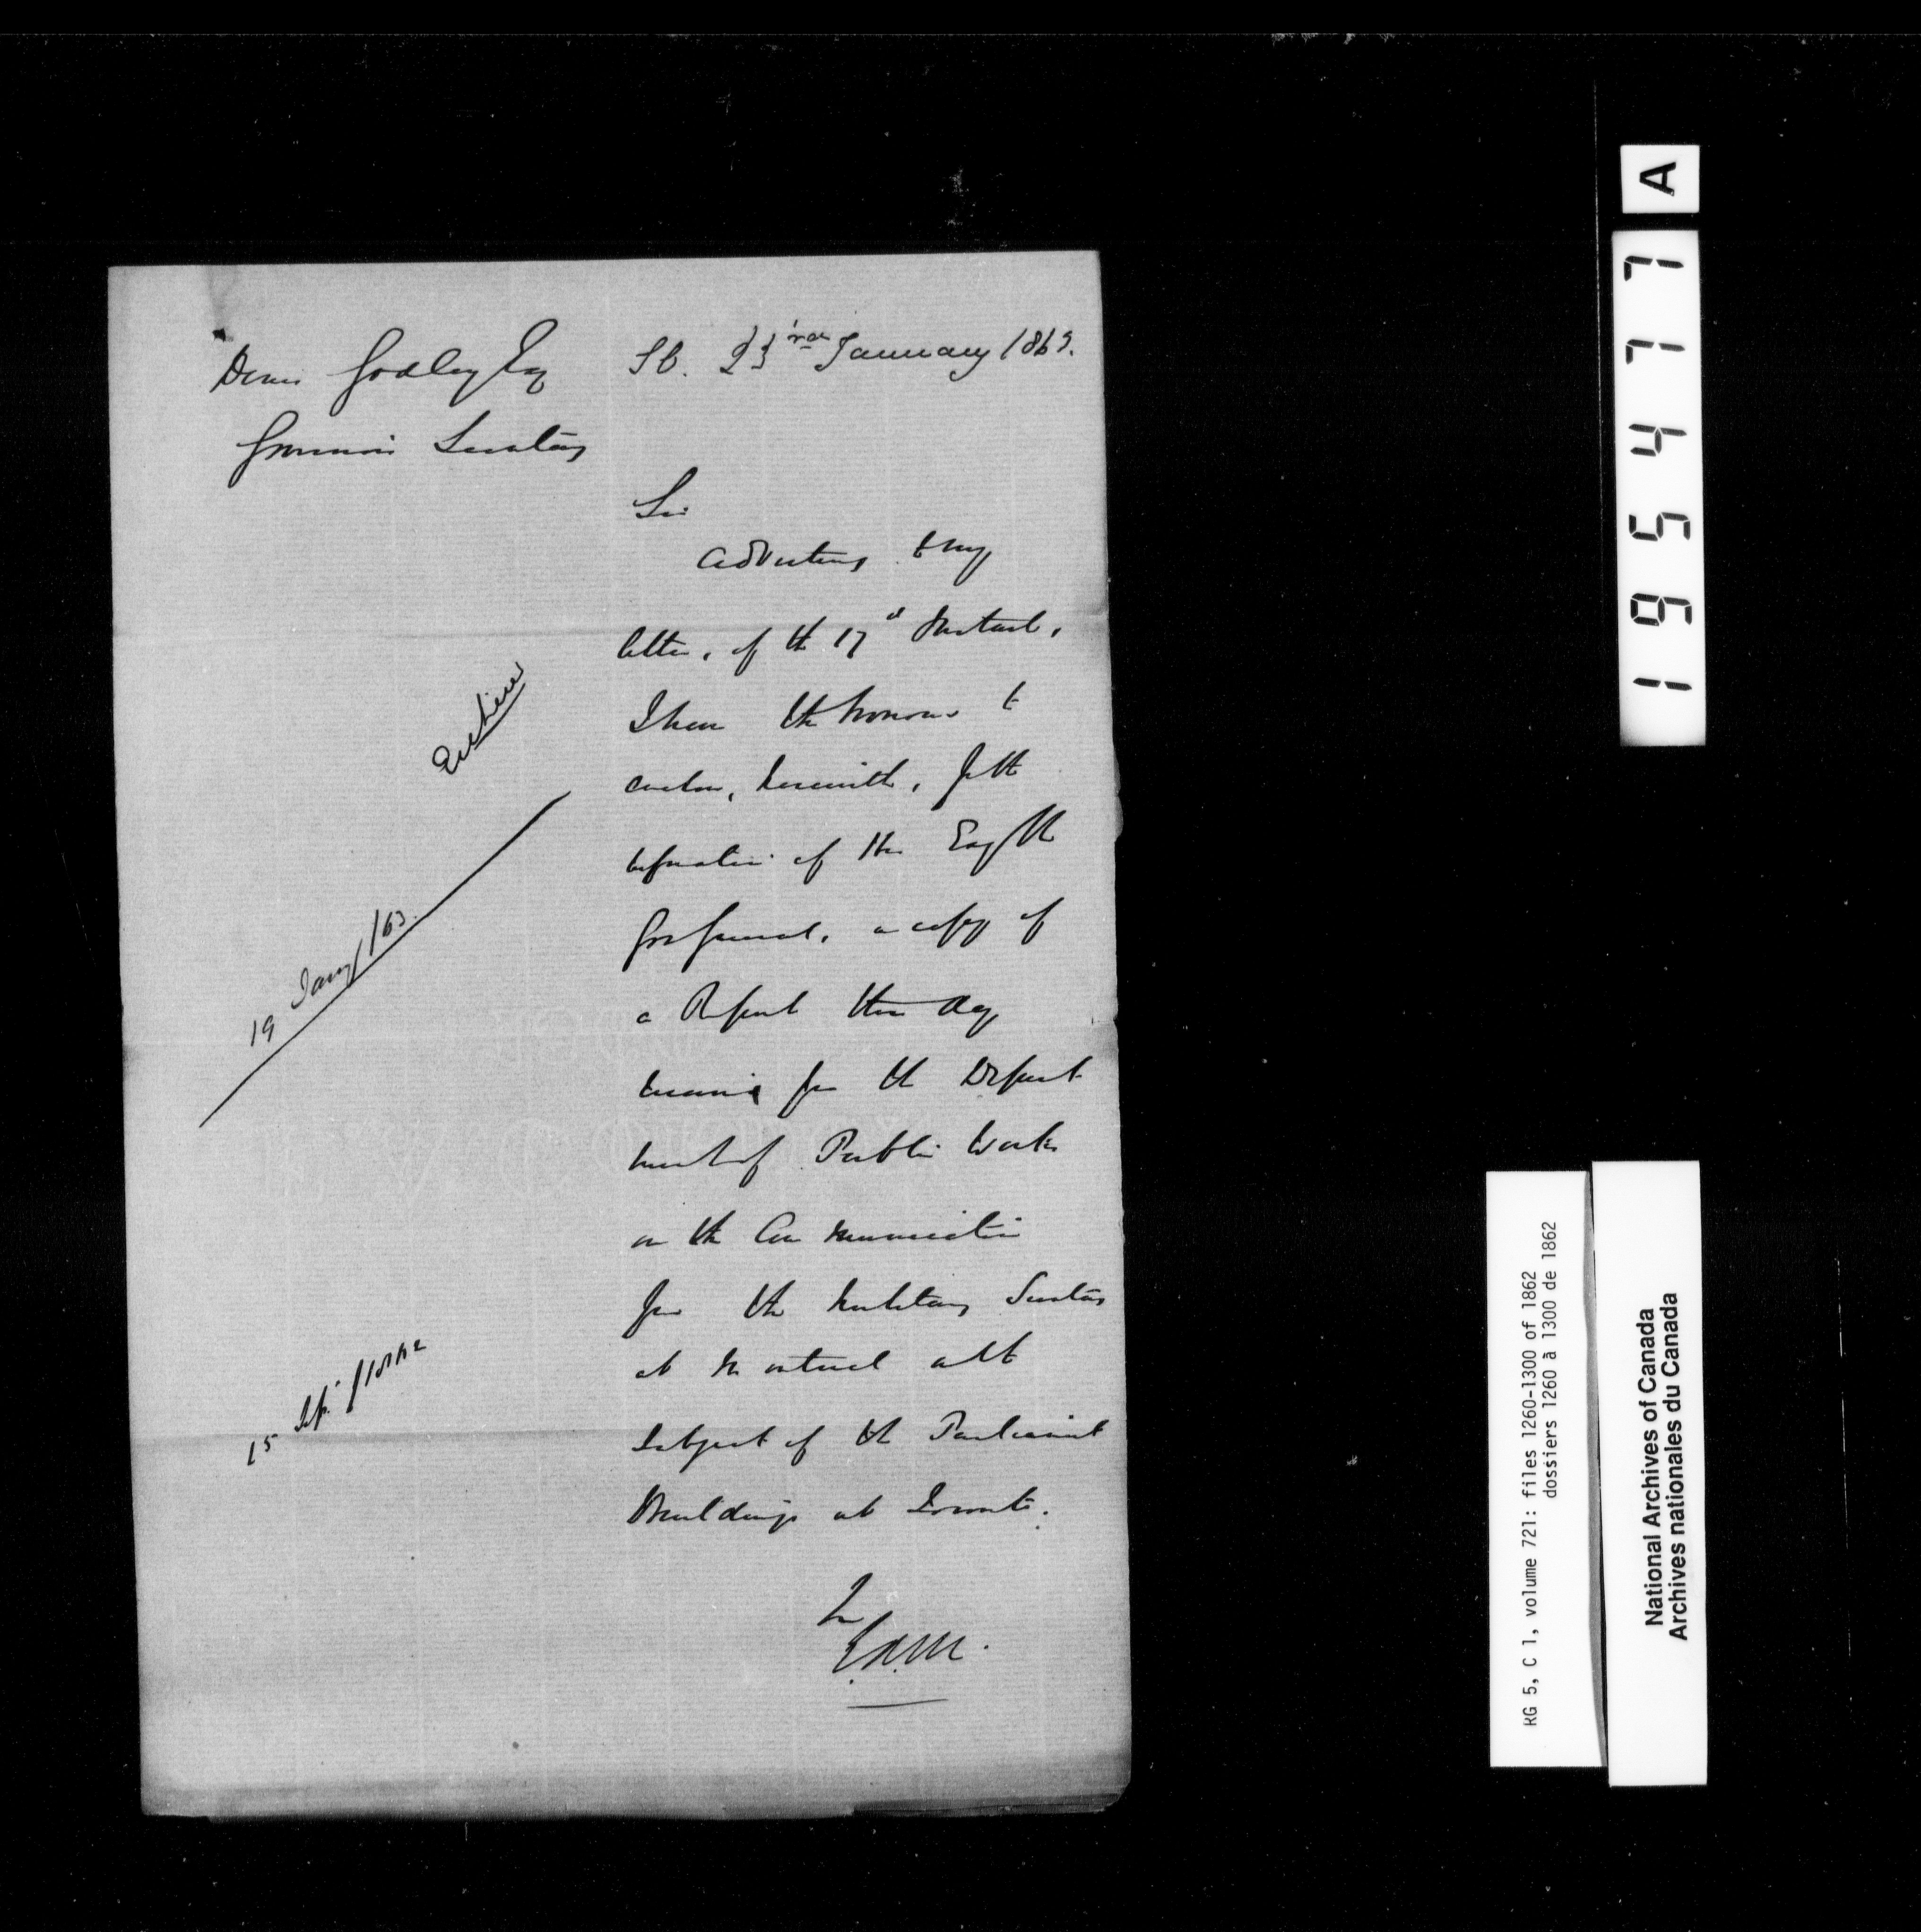 Denis Godley Esq
Governor's Secretary
S.O. 23rd January 1863.
Sir
Adverting to my
letter, of the 17th Instant,
I have the honour to
enclose, herewith, for the
information of His Excy the
Gov General, a copy of
a Report this day
received from the Depart
ment of Public Works
on the Communication
from the Military Secretary
at Montreal on the
subject of the Parliament
Buildings at Toronto.
I
E.A.M.
Enclose
19 Jany/63.
15 Sep. /1862
A
195477
RG 5, C 1, volume 721: files 1260-1300 of 1862
dossiers 1260 à 1300 de 1862
National Archives of Canada
Archives nationales du Canada